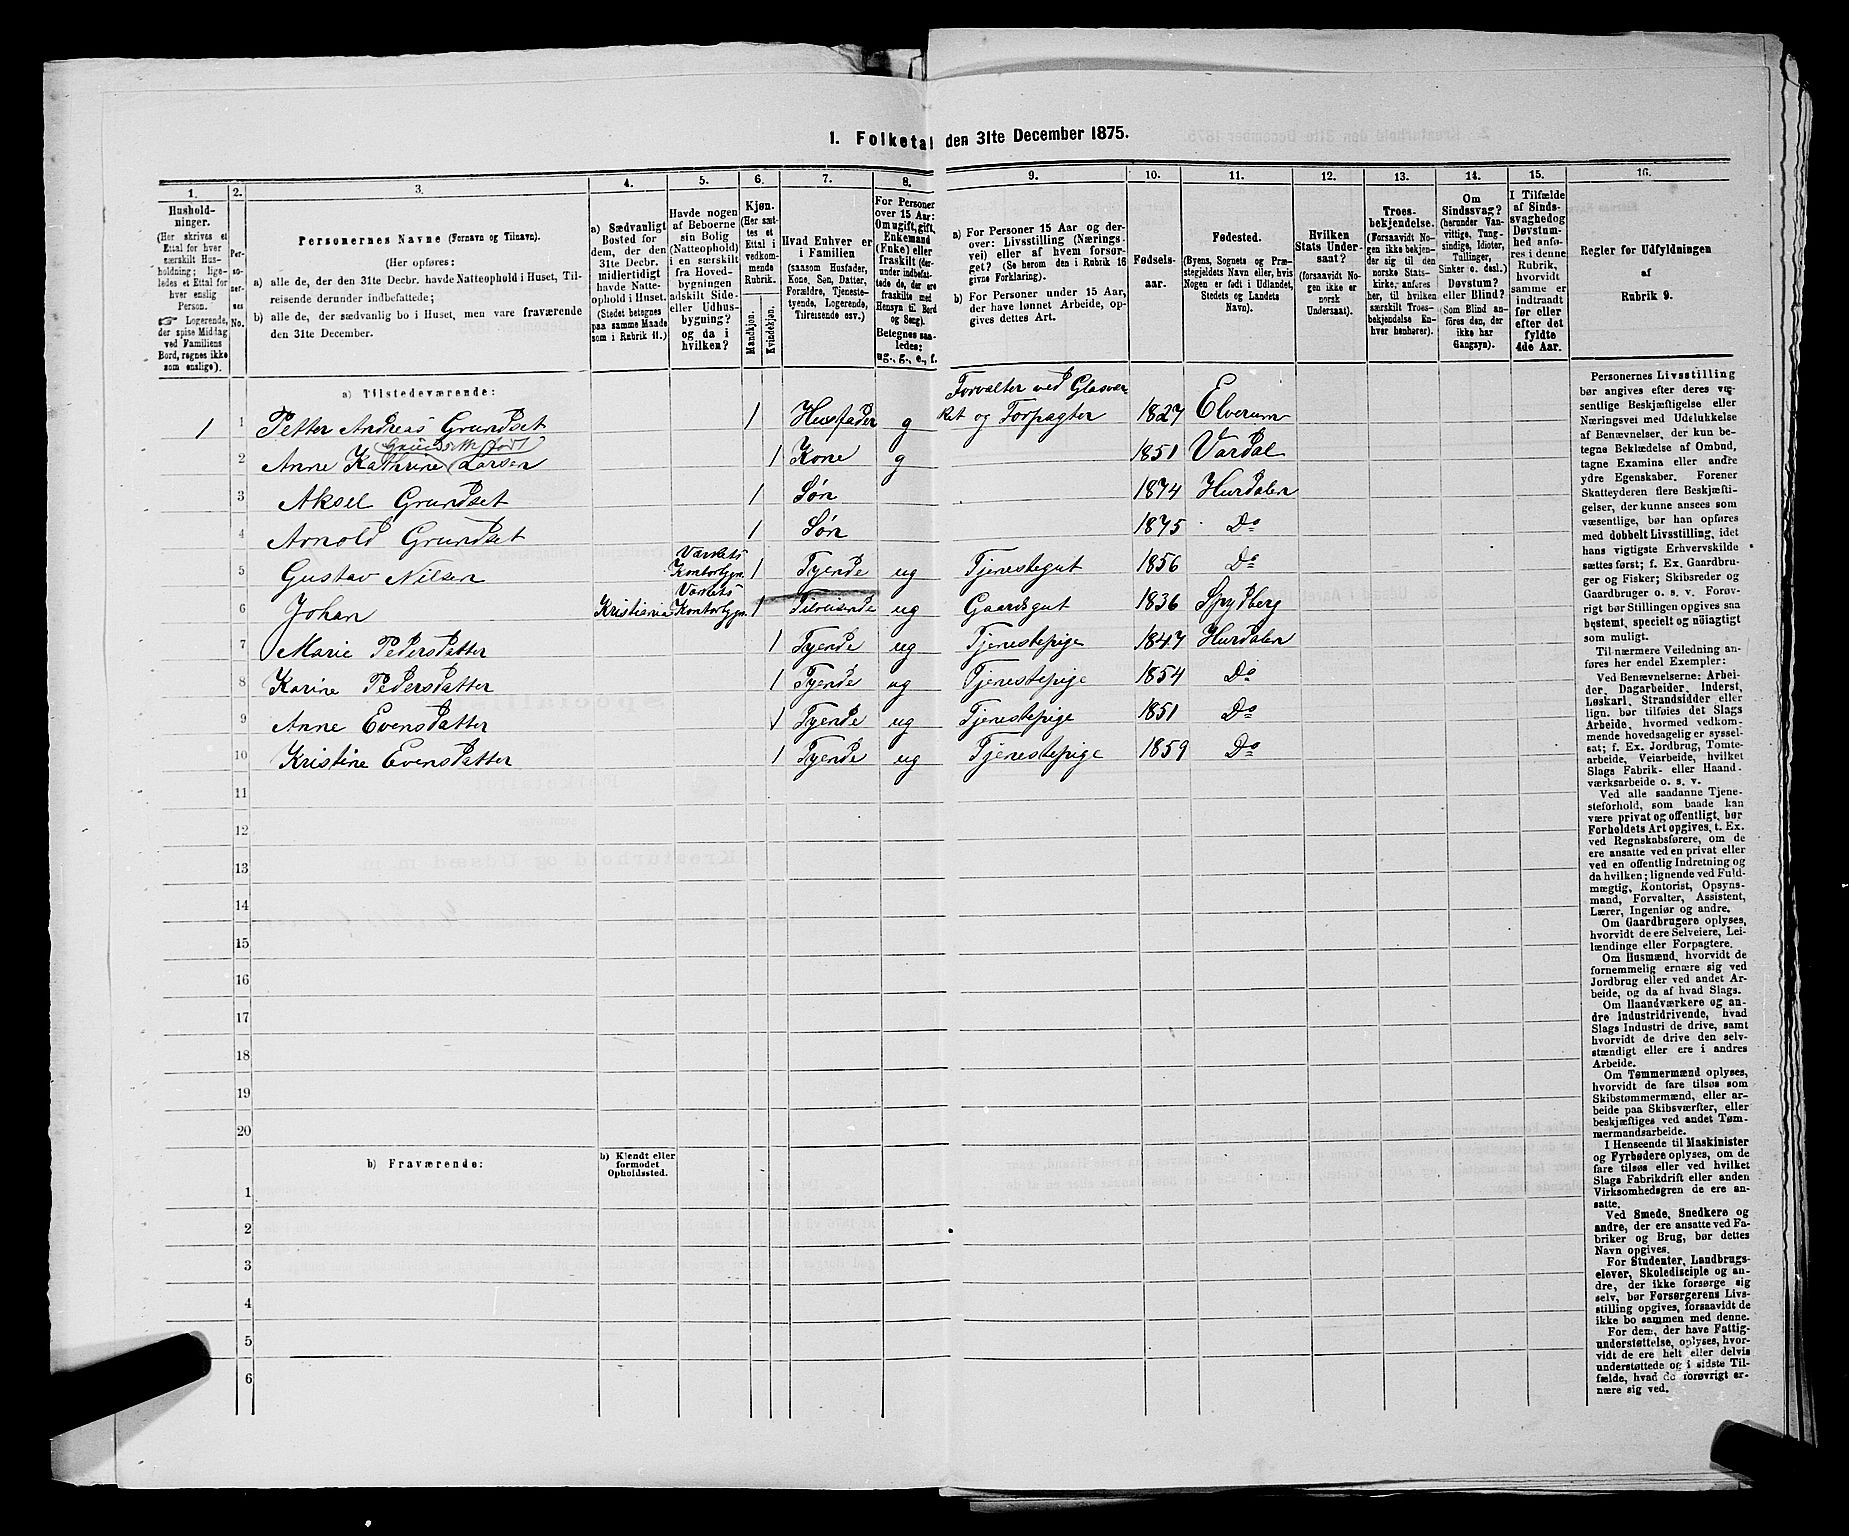 1. Folketal den 31te December 1875.
1. 2. 3. 4. 5. 6. 7. 8. 9. 10. 11. 12. 13. 14. 15. 16.
Husholdninger.
(Her skrives et
Ettal for hver
særskilt Husholdning; ligeledes et Ettal for
hver enslig
Person.
☞ Logerende,
der spise Middag
ved Familiens
Bord, regnes ikke
som enslige).
Personernes No.
Personernes Navne (Fornavn og Tilnavn).
(Her opføres:
a) alle de, der den 31te Decbr. havde Natteophold i Huset, Tilreisende derunder indbefattede;
b) alle de, der sædvanlig bo i Huset, men vare fraværende
den 31te December.
a) Sædvanligt
Bosted for
dem, der den
31te Decbr.
midlertidigt
havde Natteophold i Huset.
(Stedet betegnes
paa samme Maade
som i Rubrik 11.)
Havde nogen
af Beboerne
sin Bolig
(Natteophold)
i en særskilt
fra Hovedbygningen
adskilt Side-
eller Udhusbygning?
og da i
hvilken?
Kjøn.
(Her sættes et
Ettal i
vedkommende
Rubrik.
Mandkjøn.
Kvindekjøn.
Hvad Enhver er
i Familien
(saasom Husfader,
Kone, Søn, Datter,
Forældre, Tjenestetyende, Logerende,
Tilreisende osv.)
For Personer
over 15 Aar:
Om ugift, gift,
Enkemand
(Enke) eller
fraskilt (herunder indbefattede de, der ere
fraskilte med
Hensyn til Bord
og Seng).
Betegnes saaledes:
ug., g., e., f.
a) For Personer 15 Aar og derover: Livsstilling (Næringsvei) eller af hvem forsørget? (Se herom den i Rubrik 16
givne Forklaring).
b) For Personer under 15 Aar,
der have lønnet Arbeide, opgives dettes Art.
Fødselsaar.
Fødested.
(Byens, Sognets og Præstegjeldets Navn, eller, hvis
Nogen er født i Udlandet,
Stedets og Landets
Navn).
Hvilken
Stats Undersaat?
(forsaavidt Nogen ikke er
norsk
Undersaat).
Troesbekjendelse.
(Forsaavidt Nogen ikke bekjender sig til den
norske Statskirke, anføres
her, til hvilken
særskilt Troesbekjendelse Enhver henhører).
Om
Sindssvag?
(herunder Vanvittige, Tungsindige, Idioter,
Tullinger,
Sinker o. desl.)
Døvstum?
eller Blind?
(Som Blind anføres den, der
ikke har
Gangsyn).
I Tilfælde
af Sindssvaghed og
Døvstumhed anføres i denne
Rubrik,
hvorvidt
samme er
indtraadt
før eller
efter det
fyldte
4de Aar.
Regler for Udfyldningen
af
Rubrik 9.
a) Tilstedeværende:
Forvalter ved Glasver-
1 1 Petter Andreas Grundset 1 Husfader g ket og Forpagter 1827 Elverum
2 Anne Kathrine Grundseth født Larsen 1 Kone g 1851 Vardal
3 Aksel Grundset 1 Søn 1874 Hurdalen
4 Arnold Grundset 1 Søn 1875 Do
5 Gustav Nilsen Værkets Kontorbygn. 1 Tyende ug Tjenestegut 1856 Do
6 Johan Kristiania Værkets Kontorbygn. 1 Tilreisende ug Gaardsgut 1836 Spydberg
7 Marie Pedersdatter 1 Tyende ug Tjenestepige 1847 Hurdalen
8 Karine Pedersdatter 1 Tyende ug Tjenestepige 1854 Do
9 Anne Evensdatter 1 Tyende ug Tjenestepige 1851 Do
10 Kristine Evensdatter 1 Tyende ug Tjenestepige 1859 Do
11
12
13
14
15
16
17
18
19
20
b) Fraværende:
b) Kjendt eller
formodet
Opholdssted.
1
2
3
4
5
6
Personernes Livsstilling
bør angives efter deres væsentlige Beskjæftigelse eller
Næringsvei med Udelukkelse
af Benævnelser, der kun betegne Beklædelse af Ombud,
tagne Examina eller andre
ydre Egenskaber. Forener
Skatteyderen flere Beskjæftigelser, der kunne ansees som
væsentlige, bør han opføres
med dobbelt Livsstilling, idet
hans vigtigste Erhvervskilde
sættes først; f. Ex. Gaardbruger og Fisker; Skibsreder og
Gaardbruger o. s. v. Forøvrigt bør Stillingen opgives saa
bestemt, specielt og nøiagtigt
som muligt.
Til nærmere Veiledning anføres her endel Exempler:
Ved Benævnelserne: Arbeider, Dagarbeider, Inderst,
Løskarl, Strandsidder eller
lign. bør tilføies det Slags
Arbeide, hvormed vedkommende hovedsagelig er sysselsat; f. Ex. Jordbrug, Tomtearbeide, Veiarbeide, hvilket
Slags Fabrik- eller Haandværksarbeide o. s. v.
Ved alle saadanne Tjenesteforhold, som baade kan
være privat og offentligt, bør
Forholdets Art opgives, t. Ex.
ved Regnskabsførere, om de
ere ansatte ved en privat eller
ved en offentlig Indretning og
da hvilken; lignende ved Fuldmægtig, Kontorist, Opsynsmand, Forvalter, Assistent,
Lærer, Ingeniør og andre.
Om Gaardbrugere oplyses,
hvorvidt de ere Selveiere, Leilændinge eller Forpagtere.
Om Husmænd, hvorvidt de
fornemmelig ernære sig ved
Jordbrug eller ved andet Arbeide, og da af hvad Slags.
Om Haandværkere og andre Industridrivende, hvad
Slags Industri de drive, samt
hvorvidt de drive den selvstændigt eller ere i andres
Arbeide.
Om Tømmermænd oplyses,
hvorvidt de fare tilsøs som
Skibstømmermænd, eller arbeide paa Skibsværfter, eller
beskjæftiges ved andet Tømmermandsarbeide.
I Henseende til Maskinister
og Fyrbødere oplyses, om de
fare tilsøs eller ved hvilket
Slags Fabrikdrift eller anden
Virksomhedsgren de ere ansatte.
Ved Smede, Snedkere og
andre, der ere ansatte ved Fabriker og Brug, bør dettes
Navn opgives.
For Studenter, Landbrugselever, Skoledisciple og andre, der ikke forsørge sig
selv, bør Forsørgerens Livsstilling opgives, forsaavidt de
ikke bo sammen med denne.
For dem, der have Fattigunderstøttelse, oplyses, hvorvidt de ere helt eller delvis
understøttede og i sidste Tilfælde, hvad de forøvrigt ernære sig ved.